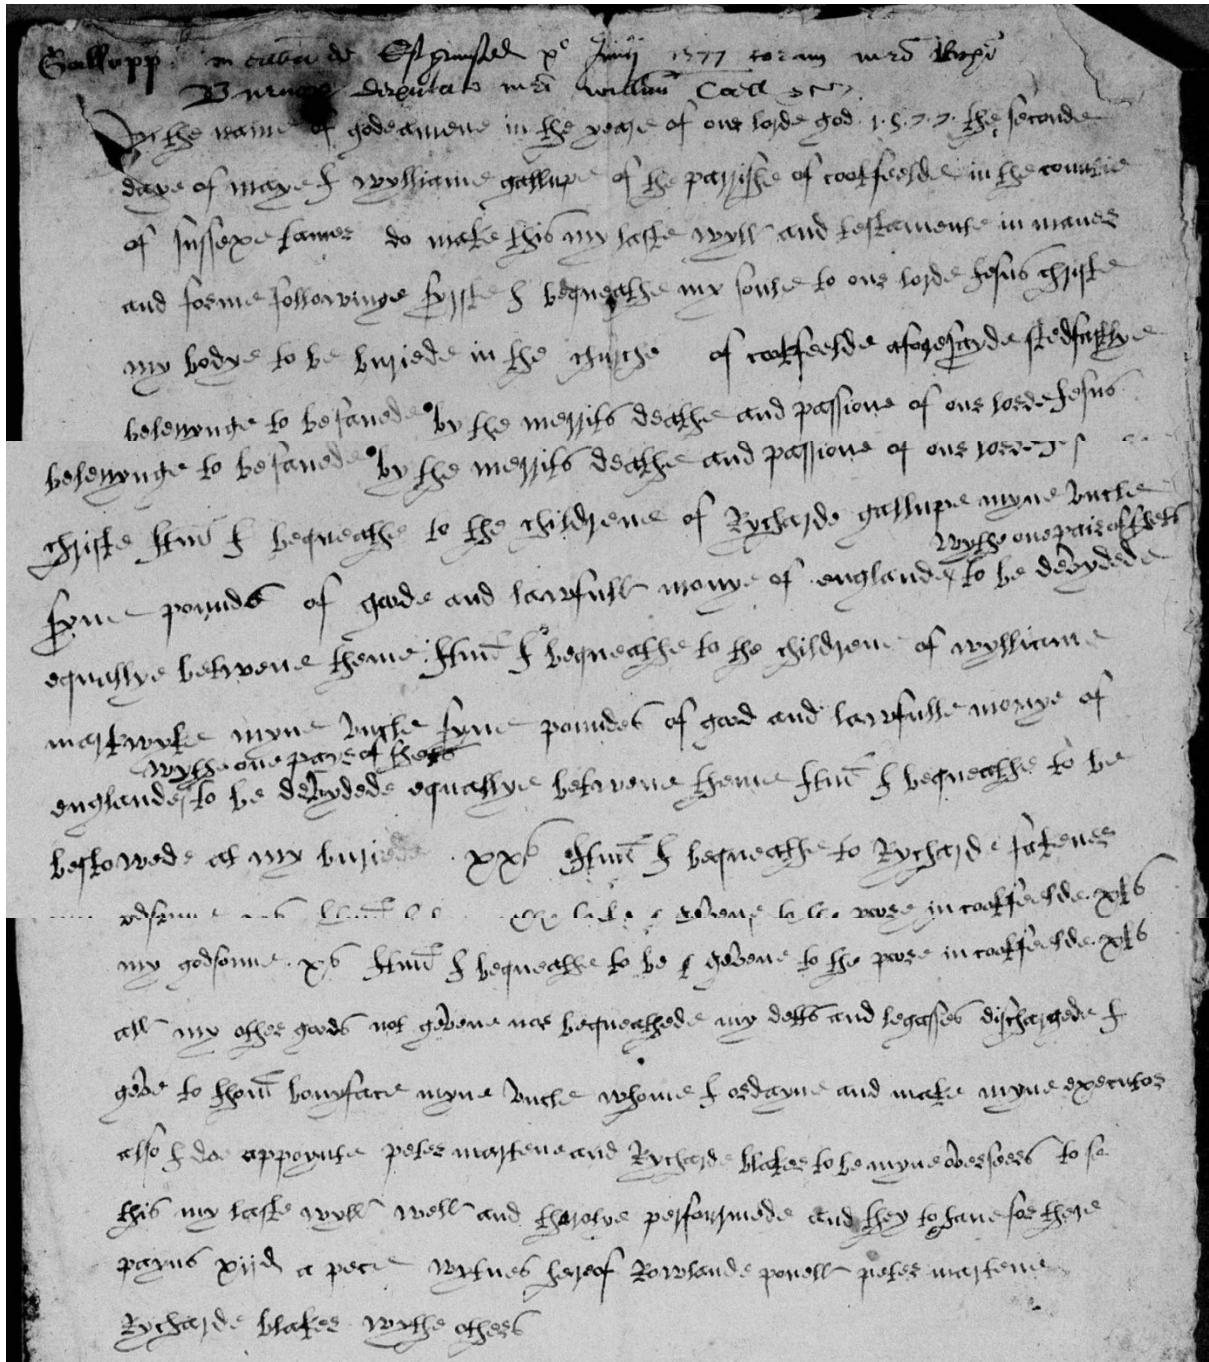 Gallupp in ecclia de Estgrinsted xo Junij 1577 coram mro
deputato mri willmi Coell
In the name of gode amene in the yeare of our lorde god 1.5.7.7. the seconde
daye of maye I wylliame gallupe of the parrishe of cookfeelde in the countie
of sussexe tanner do make this my laste wyll and testamente in maner
and forme followinge fyrste I bequeathe my soule to our lorde Jesus christe
my bodye to be buriede in the churche of cookfeelde aforesayde stedfastlye
belevynge to be savede by the merrits deathe and passione of our lorde Jesus
belevynge to be savede by the merrits deathe and passione of our lorde
christe Itm I bequeathe to the childrene of Rycharde gallupe myne uncle
wythe one pair of shets
fyve pounds of goode and lawfull monye of englande to be devydede
equallye betwene theme Itm I bequeathe to the childrene of wylliame
markwyke myne uncle fyve poundes of good and lawfulle monye of
wythe one payre of shets
englande to be devydede equallye betwene theme Itm I bequeathe to be
bestowede at my buriede xxs Itm I bequeathe to Rycharde
my godsonne xs Itm I bequeathe to be gevene to the pore in cookfeelde xls
all my other goods not gevene nor bequeathede my detts and legasses dischargede I
geve to thom bonyface myne uncle whome I ordayne and make myne executor
also I doe appoynte peter martene and Rycharde blaker to be myne overseers to se
this my laste wyll well and throlye perfourmede and they to have for there
payns xijd a pece wytnes hereof Rowlande powell peter martene
Rycharde blaker wythe others